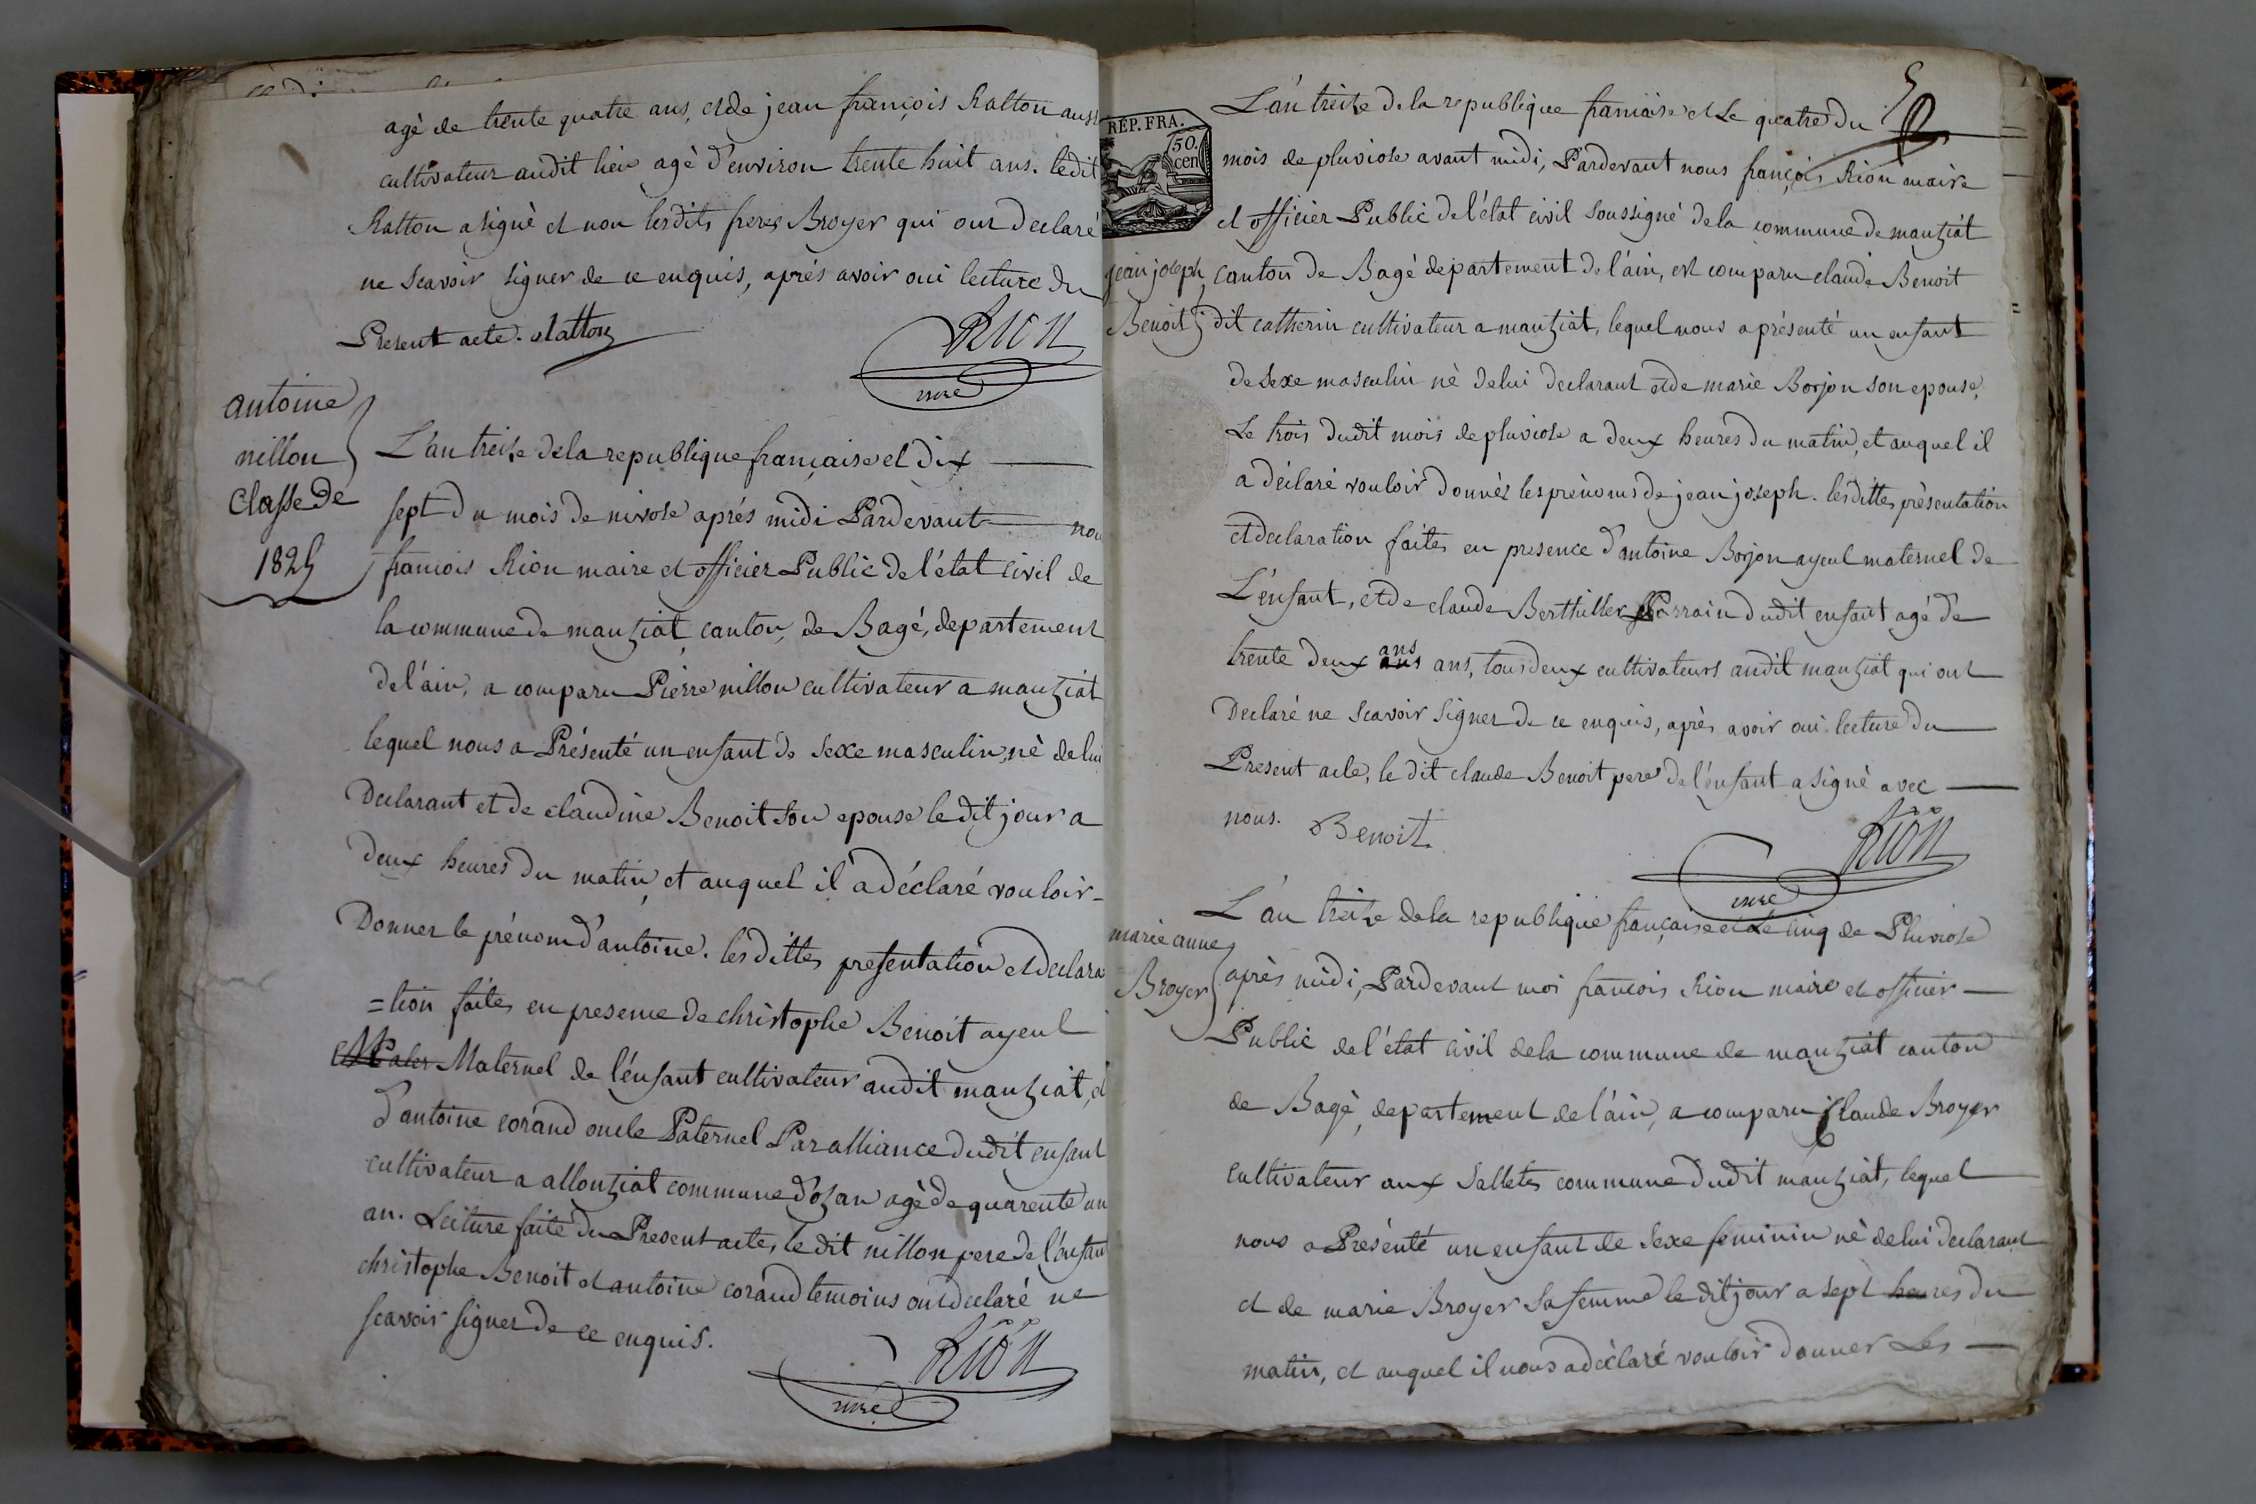 agé de trente quatre ans, et de jean françois Ratton aussi
cultivateur audit lieu agé d'environ trente huit ans. ledit
Ratton a signé et non lesdits freres Broyer qui ont declaré
ne scavoir signer de ce enquis, aprés avoir oui lecture du
Present acte. Ratton
Rion
mre
antoine
nillon
Classe de
1825
L'an treize de la republique française et dix
sept du mois de nivose aprés midi Pardevant nou
francois Rion maire et officier Public de l'état civil de
la commune de mantziat canton, de Bagé, departement
de l'ain, a comparu Pierre nillon cultivateur a mantziat
lequel nous a Présenté un enfant de sexe masculin, né de lui
Declarant et de claudine Benoit son epouse ledit jour a
deux heures du matin, et auquel il a déclaré vouloir
Donner le prénom d'antoine. lesdittes presentation et declara
=tion faites en presence de christophe Benoit ayeul
Pater Maternel de l'enfant cultivateur audit mantziat, et
d'antoine corand oncle Paternel Par alliance dudit enfant
cultivateur a allontziat commune d'ozan agé de quarente un
an. Lecture faite du Present acte, le dit nillon pere de l'enfan
christophe Benoit et antoine corand temoins ont declaré ne
scavoir signer de ce enquis.
Rion
mre
5
REP. FRA.
50.
cen
L'an treize de la republique française et Le quatre du
mois de pluviose avant midi, Pardevant nous françois Rion maire
et officier Public de l'état civil soussigné de la commune de mantziat
jean joseph
Benoit
canton de Bagé departement de l'ain, est comparu claude Benoit
dit catherin cultivateur a mantziat, lequel nous a présenté un enfant
de sexe masculin né de lui declarant et de marie Borjon son epouse,
Le trois dudit mois de pluviose a deux heures du matin, et auquel il
a déclaré vouloir donner les prénoms de jean joseph. lesdittes présentation
et declaration faites en presence d'antoine Borjon ayeul maternel de
L'enfant, et de claude Berthiller Parrain dudit enfant agé de
trente deux ans ans ans, tous deux cultivateurs audit mantziat qui ont
Declaré ne scavoir signer de ce enquis, aprés avoir oui lecture du
Present acte, le dit claude Benoit pere de l'enfant a signé avec
nous. Benoit.
Rion
mre
marie anne
Broyer
L'an treize de la republique française et Le cinq de Pluviose
aprés midi, Pardevant moi francois Rion maire et officier
Public de l'état civil de la commune de mantziat canton
de Bagé, departement de l'ain, a comparu Claude Broyer
cultivateur aux Salletes commune dudit mantziat, lequel
nous a Présenté un enfant de sexe feminin né de lui declarant
et de marie Broyer sa femme le dit jour a sept heures du
matin, et auquel il nous a déclaré vouloir donner Les